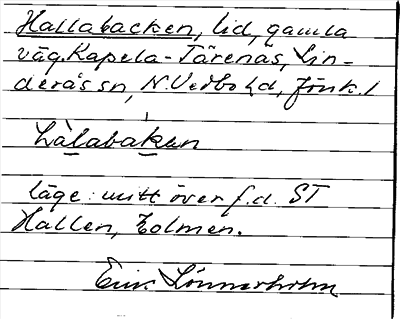 Hallabacken, lid, gamla
väg. Kapela - Tärenäs, Lin-
derås sn, N. Vedbo hd, Jönk. l
hàlabakən
läge: mitt över f.d. ST
Hallen, Lolmen.
Erik Lönnerholm